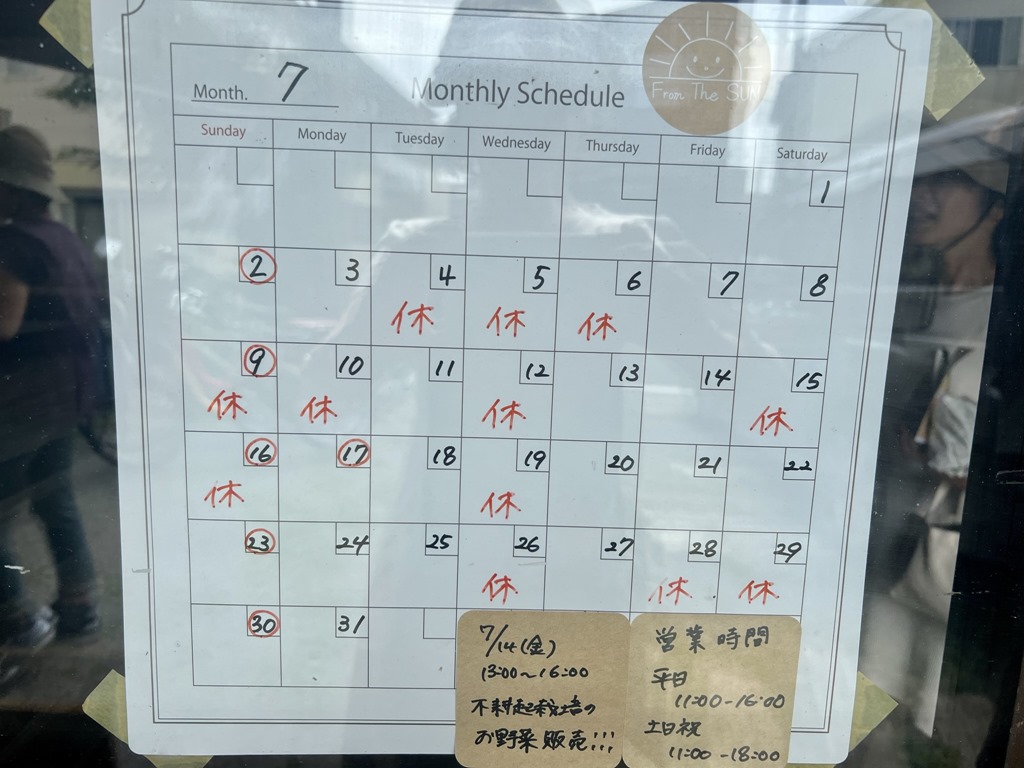 Month. 7
Monthly Schedule
From The SUN
Sunday Monday Tuesday Wednesday Thursday Friday Saturday
1
2 3 4 5 6 7 8
休 休 休
9 10 11 12 13 14 15
休 休 休 休
16 17 18 19 20 21 22
休 休
23 24 25 26 27 28 29
休 休 休
30 31
7/14(金)
13:00〜16:00
の
お野菜販売!!!
営業時間
平日
11:00-16:00
土日祝
11:00-18:00